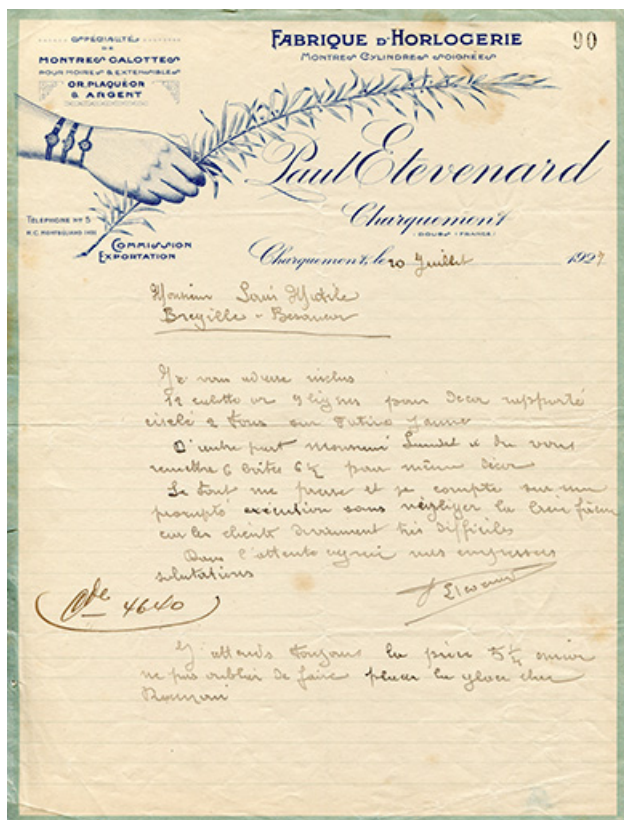 SPÉCIALITÉ
DE
MONTRES CALOTTES
POUR MOIRES & EXTENSIBLES
OR, PLAQUÉ OR
& ARGENT
FABRIQUE D'HORLOGERIE
MONTRES CYLINDRES SOIGNÉES
90
Paul Etevenard
Charquemont
(DOUBS) (FRANCE)
TÉLÉPHONE Nº 5
COMMISSION
EXPORTATION
Charquemont, le 20 Juillet 1927
Monsieur Louis
Bregille - Besancon
Je vous adresse inclus
12 calotte or 9 lignes pour decor rapporté
ciselé 2 tons sur jaune
D'autre part Monsieur a du vous
remettre 6 boites 6½ pour même décor
Le tout me presse et je compte sur une
prompte exécution sans négliger la
car les clients deviennent très difficiles
Dans l'attente mes empresses
salutations
Cde 4640
J'attends toujours la pièce 5¼
ne pas oublier de faire placer la glace chez